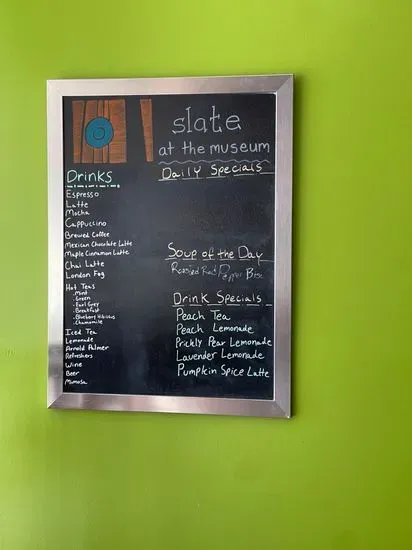 slate
at the museum
Drinks
Espresso
Latte
Mocha
Cappuccino
Brewed Coffee
Mexican Chocolate Latte
Maple Cinnamon Latte
Chai Latte
London Fog
Hot Teas
· Mint
· Green
· Earl Grey
· Breakfast
· Blueberry Hibiscus
· Chamomile
Iced Tea
Lemonade
Arnold Palmer
Refreshers
Wine
Beer
Mimosa
Daily Specials
Soup of the Day
Roasted Red Pepper
Drink Specials
Peach Tea
Peach Lemonade
Prickly Pear Lemonade
Lavender Lemonade
Pumpkin Spice Latte